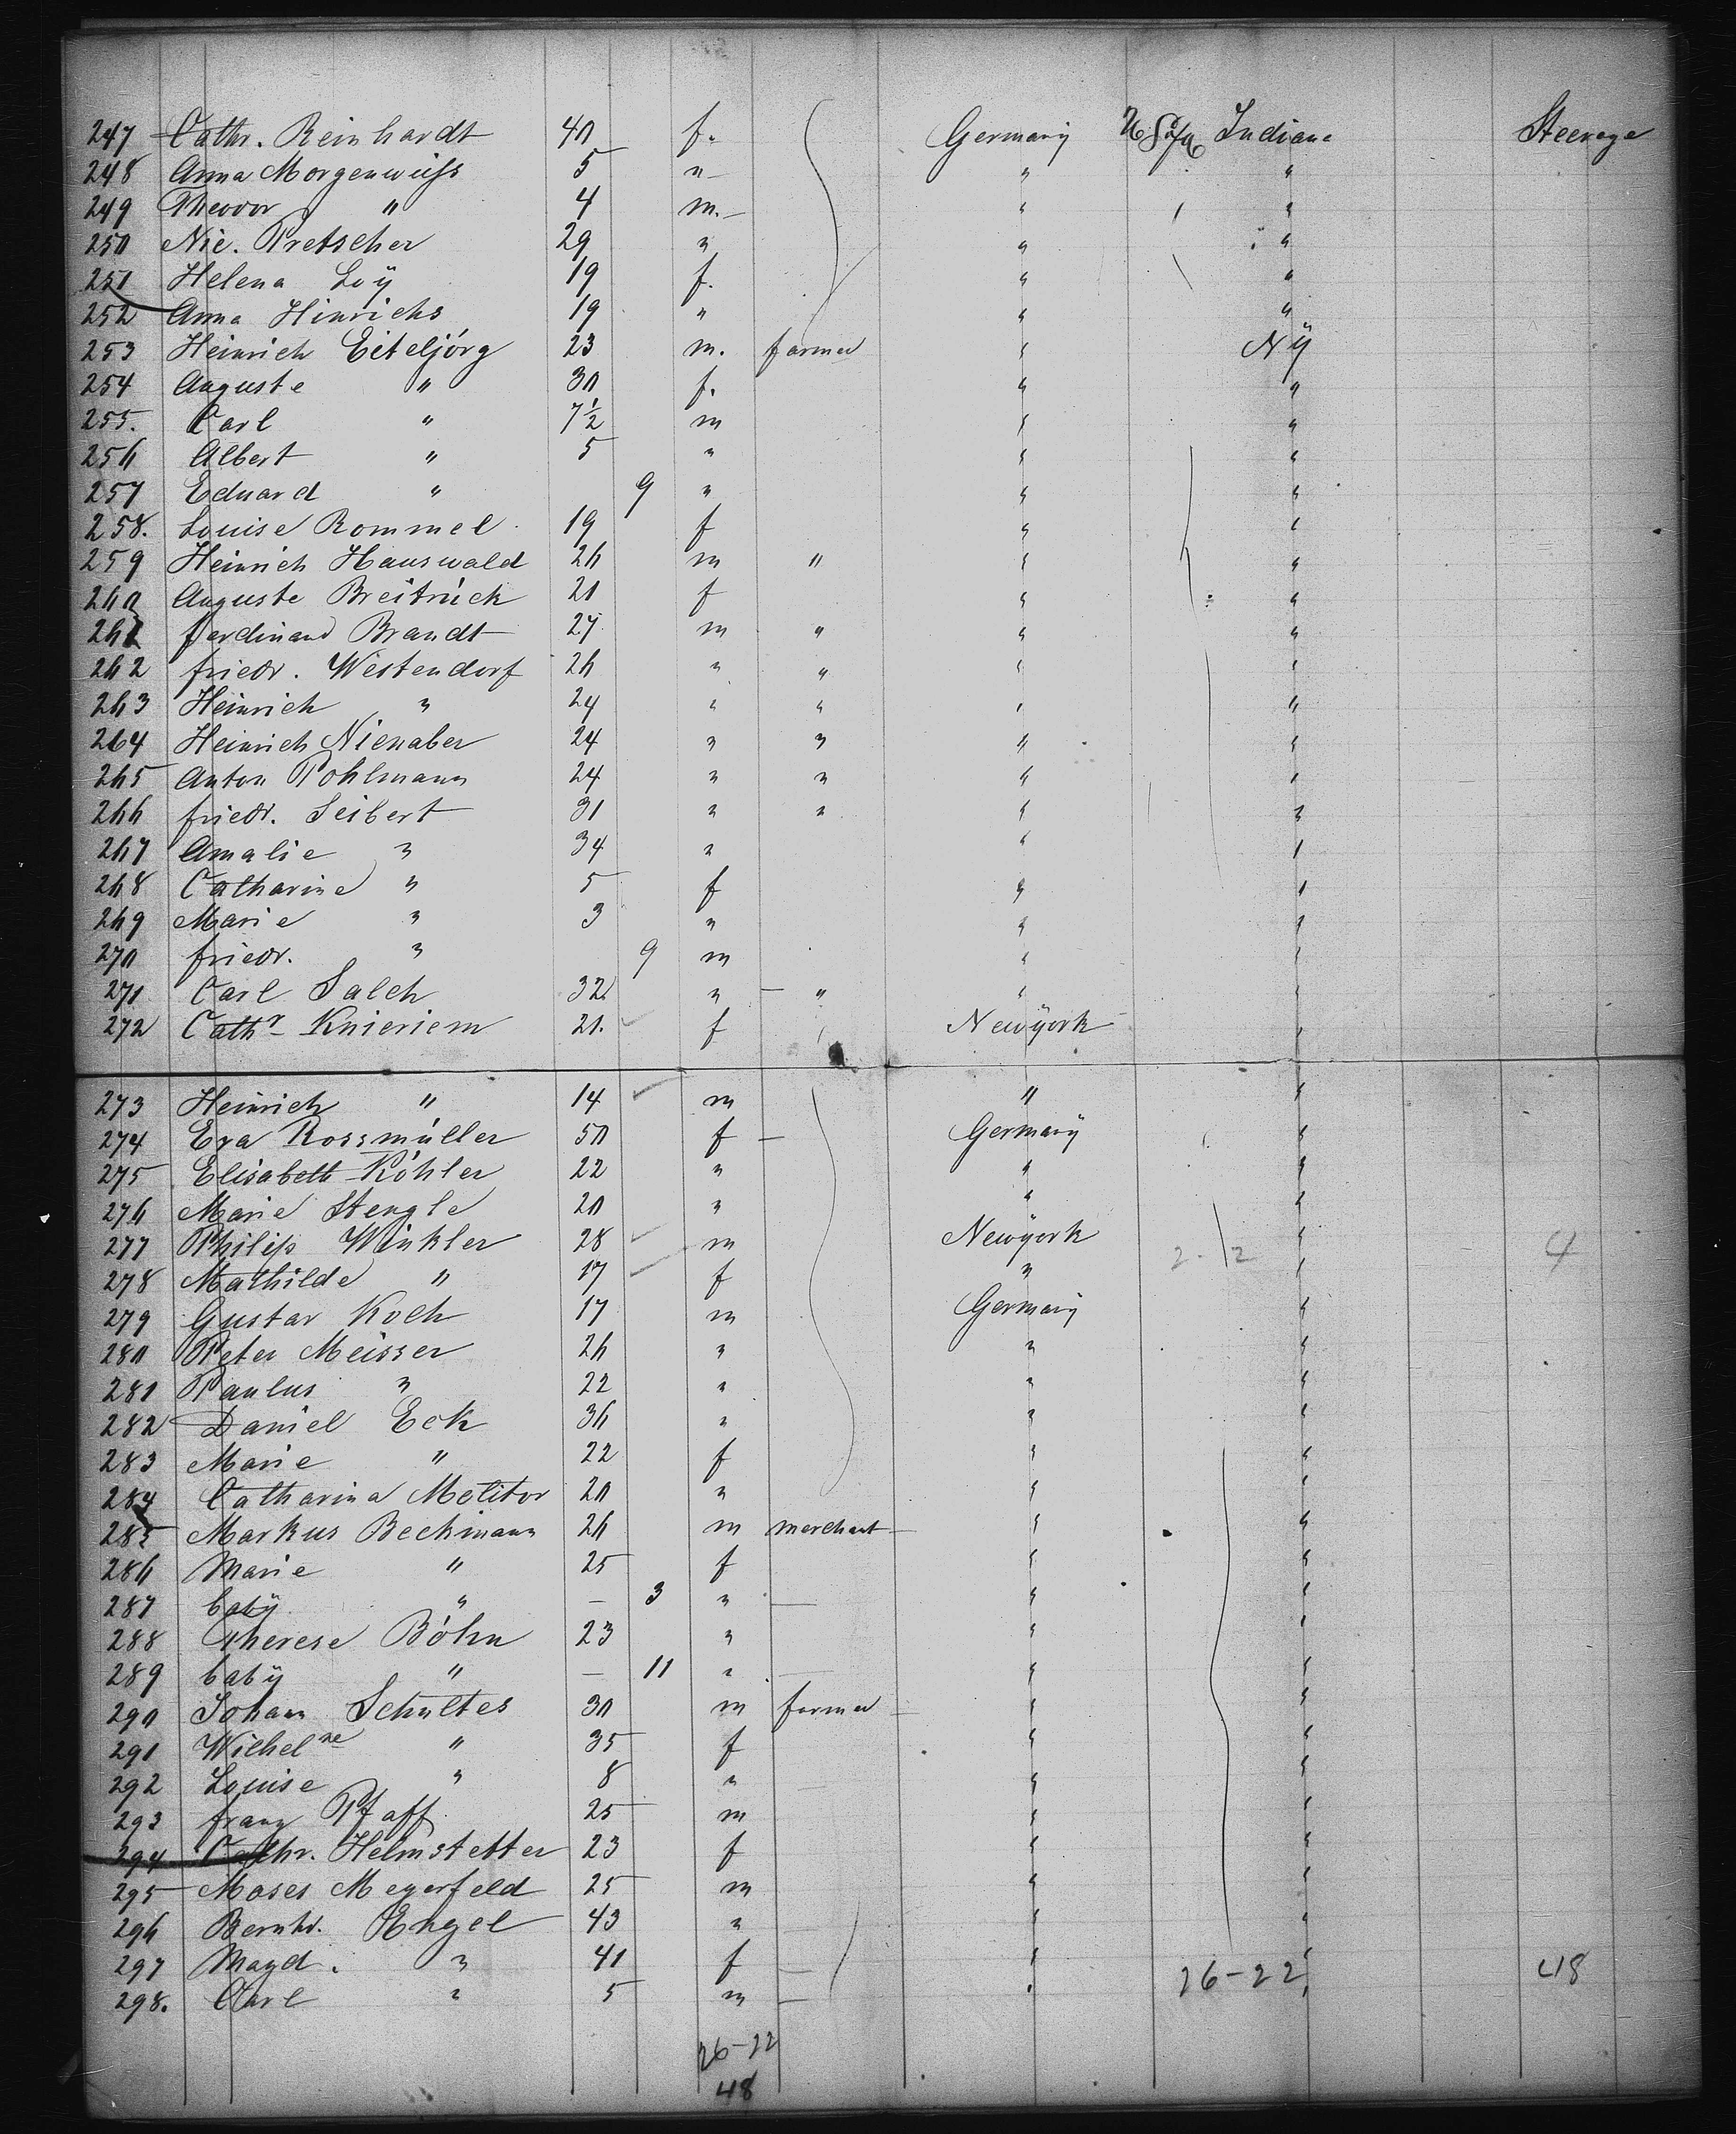 247 Cathr. Reinhardt 40 f. Germany U.S. of A Indiana Steerage
248 Anna Morgenweiss 5 " " "
249 Theodor " 4 m. " "
250 Nic. Pretscher 29 " " "
251 Helena Loÿ 19 f. " "
252 Anna Hinrichs 19 " " "
253 Heinrich Eiteljörg 23 m. farmer " NY
254 Auguste " 30 f. " "
255. Carl " 7½ m " "
256 Albert " 5 " " "
257 Eduard " 9 " " "
258. Louise Rommel 19 f " "
259 Heinrich Hauswald 26 m " " "
260 Auguste Breitrück 21 f " "
261 Ferdinand Brandt 27 m " " "
262 friedr. Westendorf 26 " " " "
263 Heinrich " 24 " " " "
264 Heinrich Nienaber 24 " " " "
265 Anton Pohlmann 24 " " " "
266 friedr. Seibert 31 " " " "
267 Amalie " 34 " " "
268 Catharine " 5 f " "
269 Marie " 3 " " "
270 friedr. " 9 m " "
271 Carl Salch 32 " " " "
272 Cathr Knieriem 21. f Newÿork "
273 Heinrich " 14 m " "
274 Eva Rossmüller 50 f Germanÿ "
275 Elisabeth Köhler 22 " " "
276 Marie Stengle 20 " " "
277 Philip Winkler 28 m Newÿork 2-2 " 4
278 Mathilde " 17 f " "
279 Gustav Koch 17 m Germany "
280 Peter Meisser 26 " " "
281 Paulus " 22 " " "
282 Daniel Eck 36 " " "
283 Marie " 22 f " "
284 Catharina Molitor 20 " " "
285 Markus Beckmann 26 m merchant " "
286 Marie " 25 f " "
287 babÿ " — 3 " " "
288 Therese Böhn 23 " " "
289 babÿ " — 11 " " "
290 Johann Schultes 30 m farmer " "
291 Wilhelne " 35 f " "
292 Louise " 8 " " "
293 franz Pfaff 25 m " "
294 Cathr. Helmstetter 23 f " "
295 Moses Meyerfeld 25 m " "
296 Bernhd. Engel 43 " " "
297 Magd. " 41 f " "
298. Carl " 5 m " 26-22 " 48
26-22
48